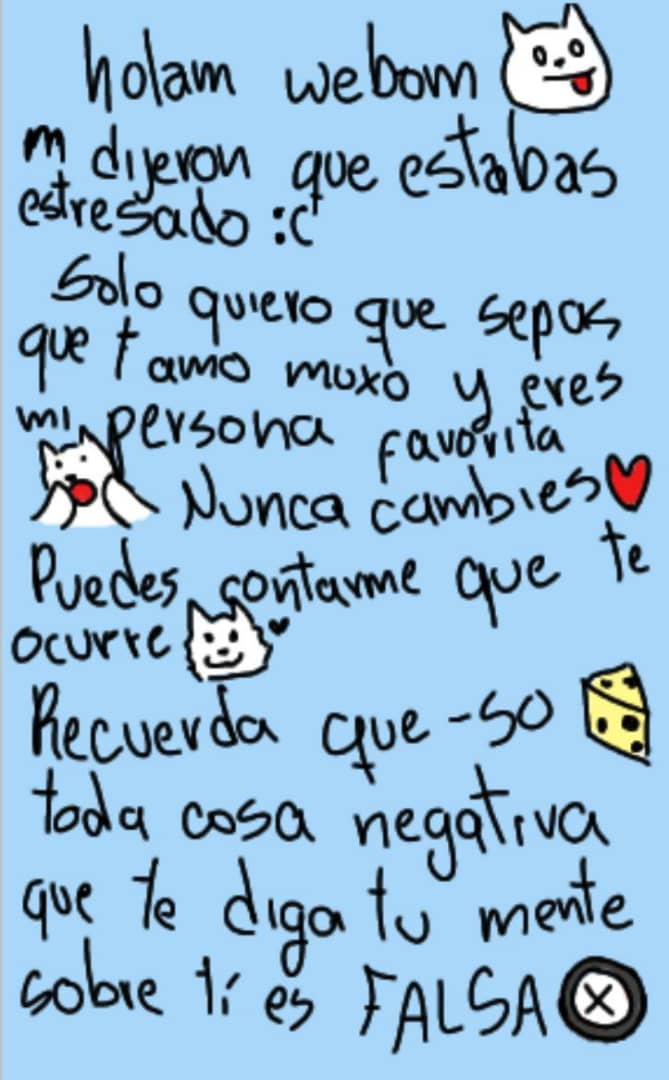 holam webom
m dijeron que estabas
estresado :c
Solo quiero que sepas
que t amo muxo y eres
mi persona favorita
Nunca cambies
Puedes contarme que te
ocurre
Recuerda que-so
toda cosa negativa
que te diga tu mente
sobre tí es FALSA